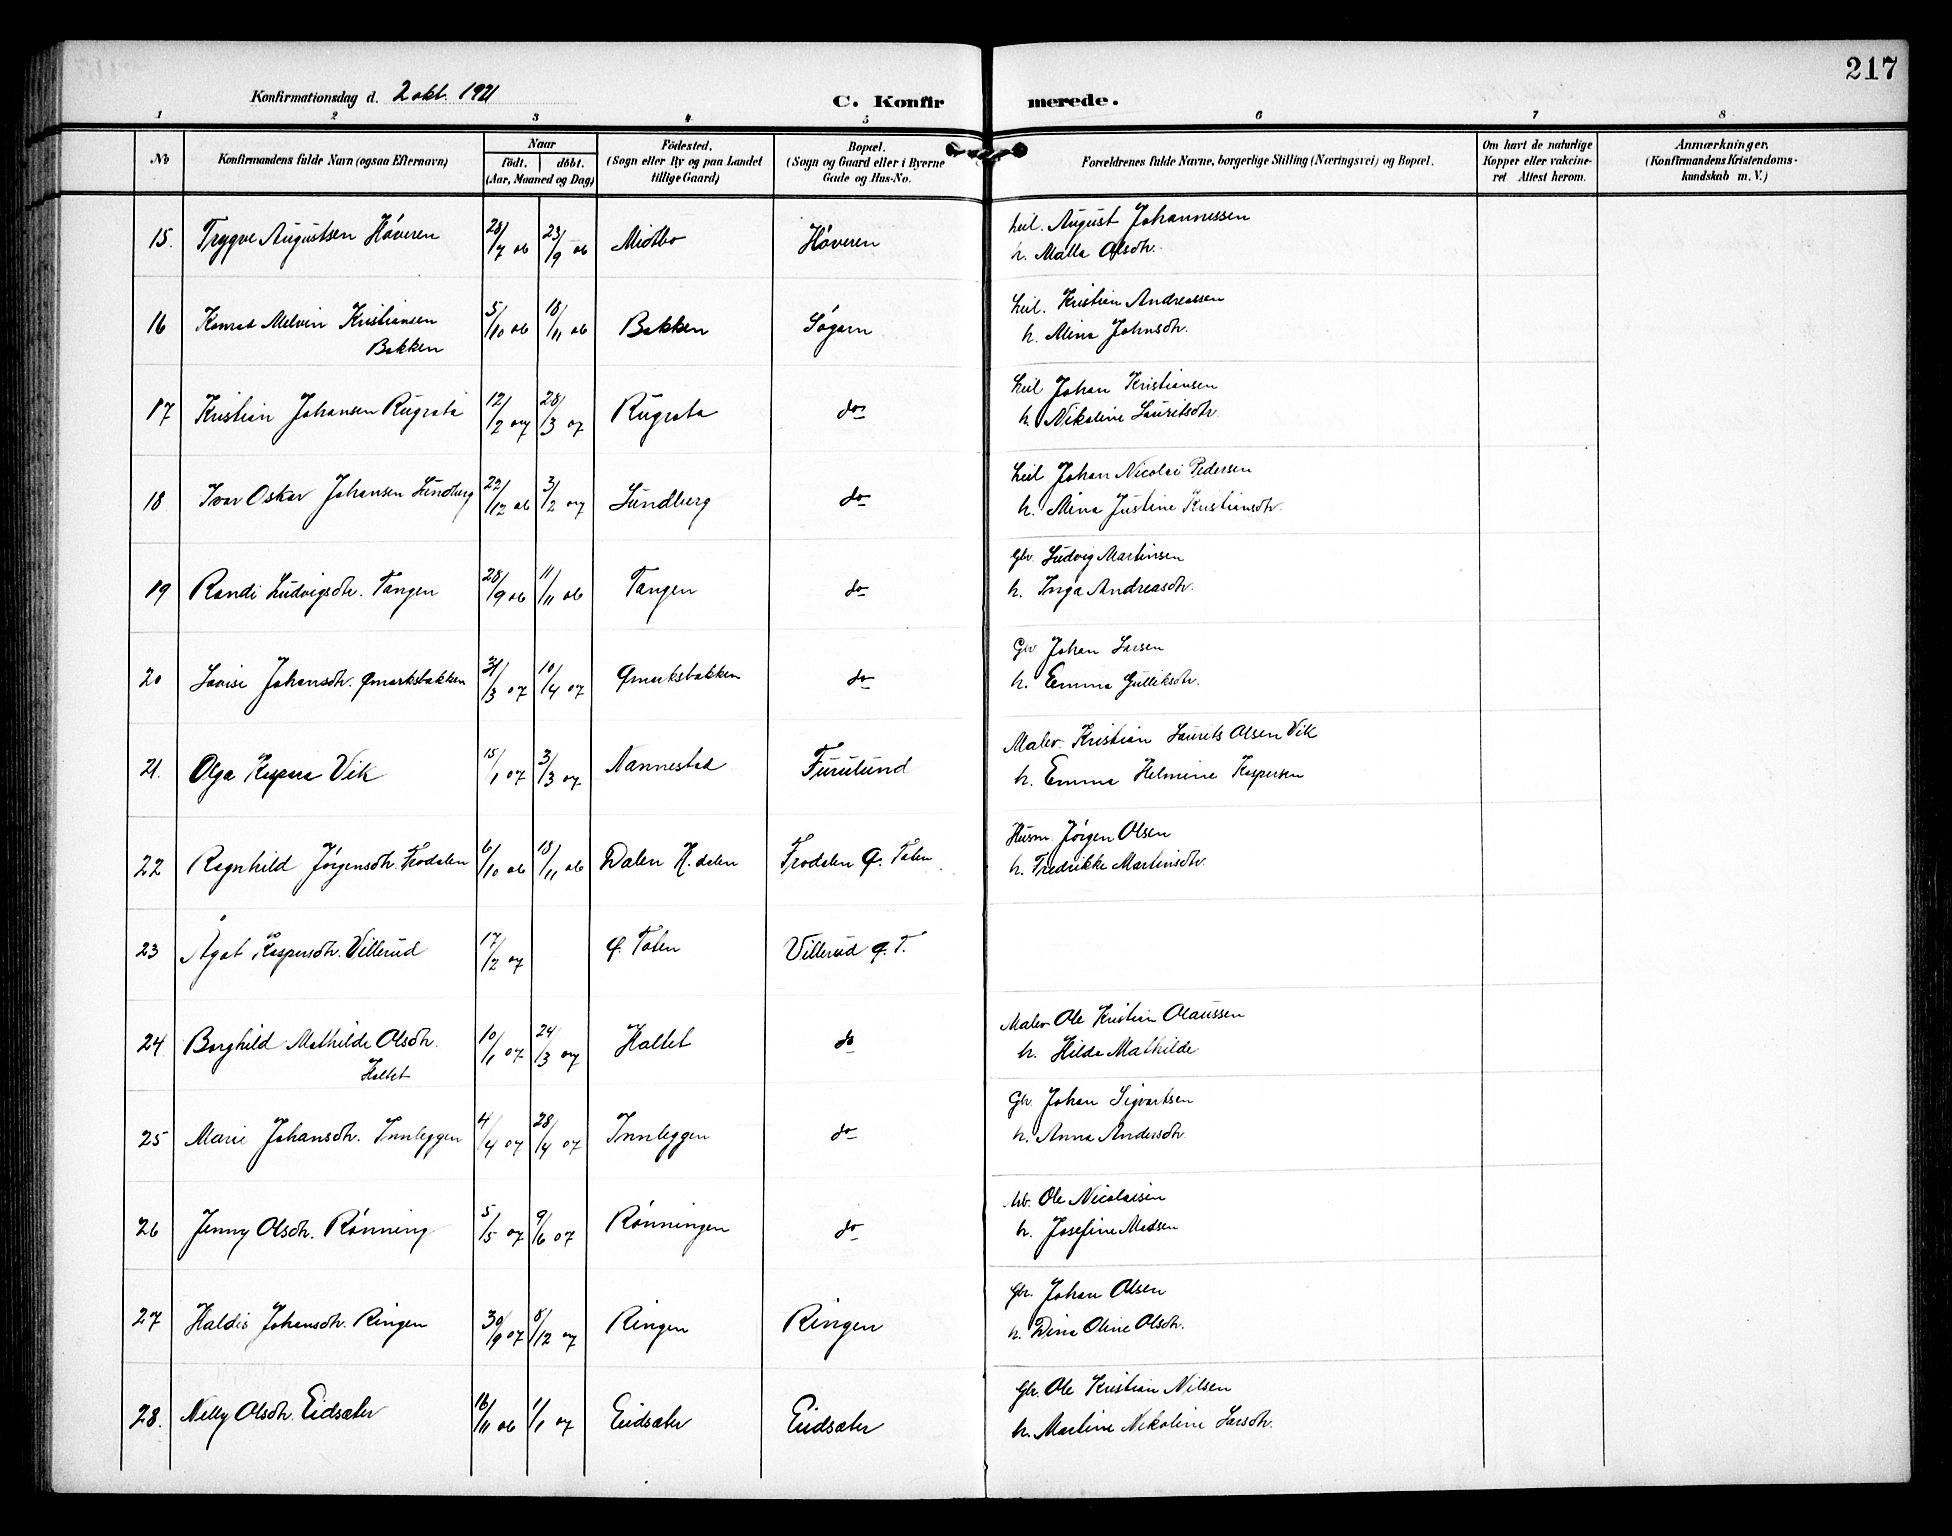 217
Konfirmationsdag d. 2 okt. 1921
C. Konfirmerede.
1 2 3 4 5 6 7 8
No
Konfirmandens fulde Navn (ogsaa Efternavn)
Naar
födt. döbt.
(Aar, Maaned og Dag)
Födested.
(Sogn eller By og paa Landet
tillige Gaard)
Bopæl.
(Sogn og Gaard eller i Byerne
Gade og Hus-No.
Forældrenes fulde Navne, borgerlige Stilling (Næringsvei) og Bopæl.
Om havt de naturlige
Kopper eller vakcine-
ret Attest herom.
Anmærkninger.
(Konfirmandens Kristendoms-
kundskab m. V.)
15. Trygve Augustsen Høveren 28/7 06 23/9 06 Midtbo Høveren Leil. August Johannessen
h. Malla Olsdtr.
16 Konrad Melvin Kristiansen 5/10 06 18/11 06 Bakken Søgarn Leil. Kristian Andreassen
Bakken h. Mina Johnsdtr.
17 Kristian Johansen Rugsata 12/2 07 28/3 07 Rugsata do Leil Johan Kristiansen
h. Nikoline Lauritsdtr.
18 Ivar Oskar Johansen Lundberg 22/12 06 3/2 07 Lundberg do Leil Johan Nicolai Pedersen
h. Mina Justine Kristiansdtr.
19 Randi Ludvigsdtr. Tangen 28/9 06 11/11 06 Tangen do Gbr. Ludvig Martinsen
h. Inga Andreasdtr.
20 Lovise Johansdtr. Ømarksbakken 31/3 07 10/4 07 Ømarksbakken do Gbr Johan Larsen
h. Emma Gulliksdtr.
21. Olga Kaspara Vik 15/1 07 3/3 07 Nannestad Furulund Maler Kristian Laurits Olsen Vik
h. Emma Helmine Kaspersen
22 Ragnhild Jørgensdtr. Frodalen 6/10 06 18/11 06 Dalen H.dalen Frodalen Ø. Toten Husm. Jørgen Olsen
h. Fredrikke Martinsdtr.
23 Ågot Kaspersdtr. Villerud 17/2 07 Ø. Toten Villerud Ø. T.
24 Borghild Mathilde Olsdtr. 10/1 07 24/3 07 Haltet do Maler Ole Kristian Olaussen
Haltet h. Hilda Mathilde
25 Marie Johansdtr. Innleggen 4/4 07 28/4 07 Innleggen do Gbr. Johan Sigvartsen
h. Anna Andersdtr.
26 Jenny Olsdtr. Rønning 5/5 07 9/6 07 Rønningen do Arb. Ole Nicolaisen
h. Josefine Madsen
27 Haldis Johansdtr. Ringen 30/9 07 8/12 07 Ringen Ringen Gbr. Johan Olsen
h. Dina Oline Olsdtr.
28. Nelly Olsdtr. Eidsæter 16/11 06 1/1 07 Eidsæter Eidsæter Gbr. Ole Kristian Nilsen
h. Martine Nikoline Larsdtr.